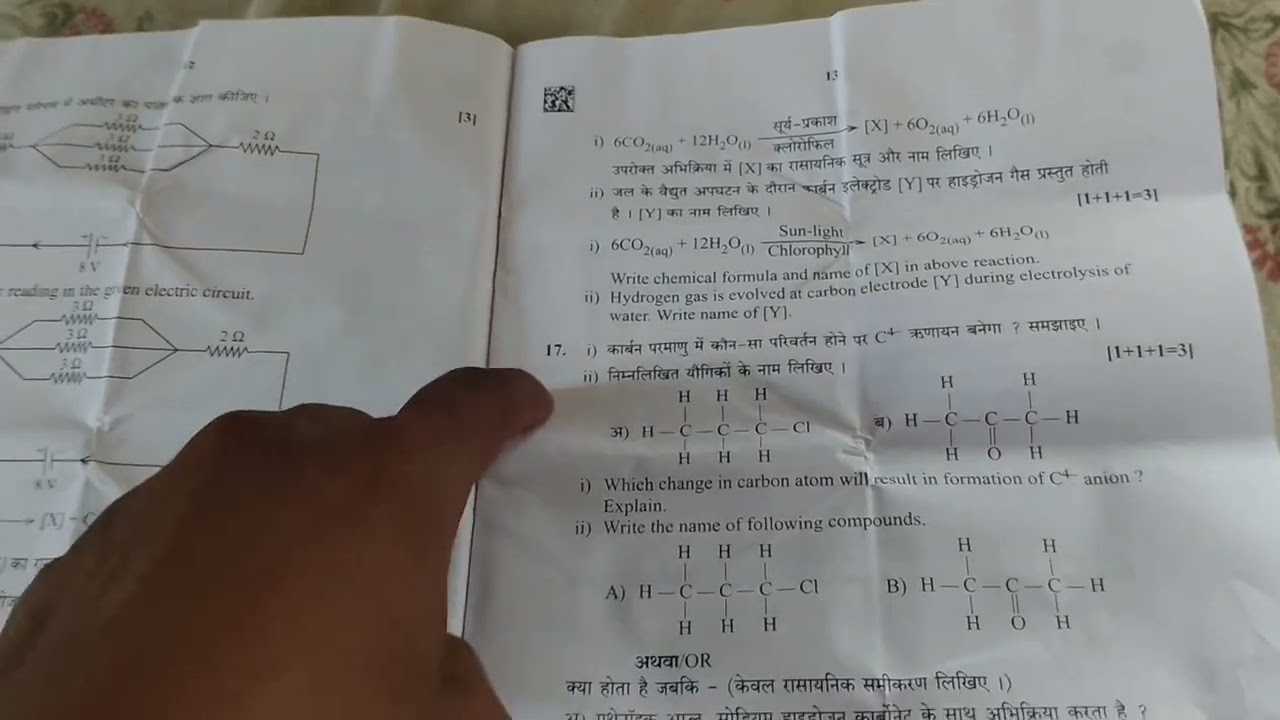 [3]
3 Ω
3 Ω
3 Ω
2 Ω
8 V
reading in the given electric circuit.
3 Ω
3 Ω
3 Ω
2 Ω
8 V
13
i) 6CO2(aq) + 12H2O(l) सूर्य-प्रकाश क्लोरोफिल [X] + 6O2(aq) + 6H2O(l)
उपरोक्त अभिक्रिया में [X] का रासायनिक सूत्र और नाम लिखिए ।
ii) जल के वैद्युत अपघटन के दौरान कार्बन इलेक्ट्रोड [Y] पर हाइड्रोजन गैस प्रस्तुत होती
है । [Y] का नाम लिखिए ।
[1+1+1=3]
i) 6CO2(aq) + 12H2O(l) Sun-light Chlorophyll [X] + 6O2(aq) + 6H2O(l)
Write chemical formula and name of [X] in above reaction.
ii) Hydrogen gas is evolved at carbon electrode [Y] during electrolysis of
water. Write name of [Y].
17. i) कार्बन परमाणु में कौन-सा परिवर्तन होने पर C4– ऋणायन बनेगा ? समझाइए ।
ii) निम्नलिखित यौगिकों के नाम लिखिए ।
[1+1+1=3]
H H H
अ) H – C – C – C – Cl
H H H
H H
ब) H – C – C – C – H
H O H
i) Which change in carbon atom will result in formation of C4– anion ?
Explain.
ii) Write the name of following compounds.
H H H
A) H – C – C – C – Cl
H H H
H H
B) H – C – C – C – H
H O H
अथवा/OR
क्या होता है जबकि – (केवल रासायनिक समीकरण लिखिए ।)
कार्बोनेट के साथ अभिक्रिया करता है ?